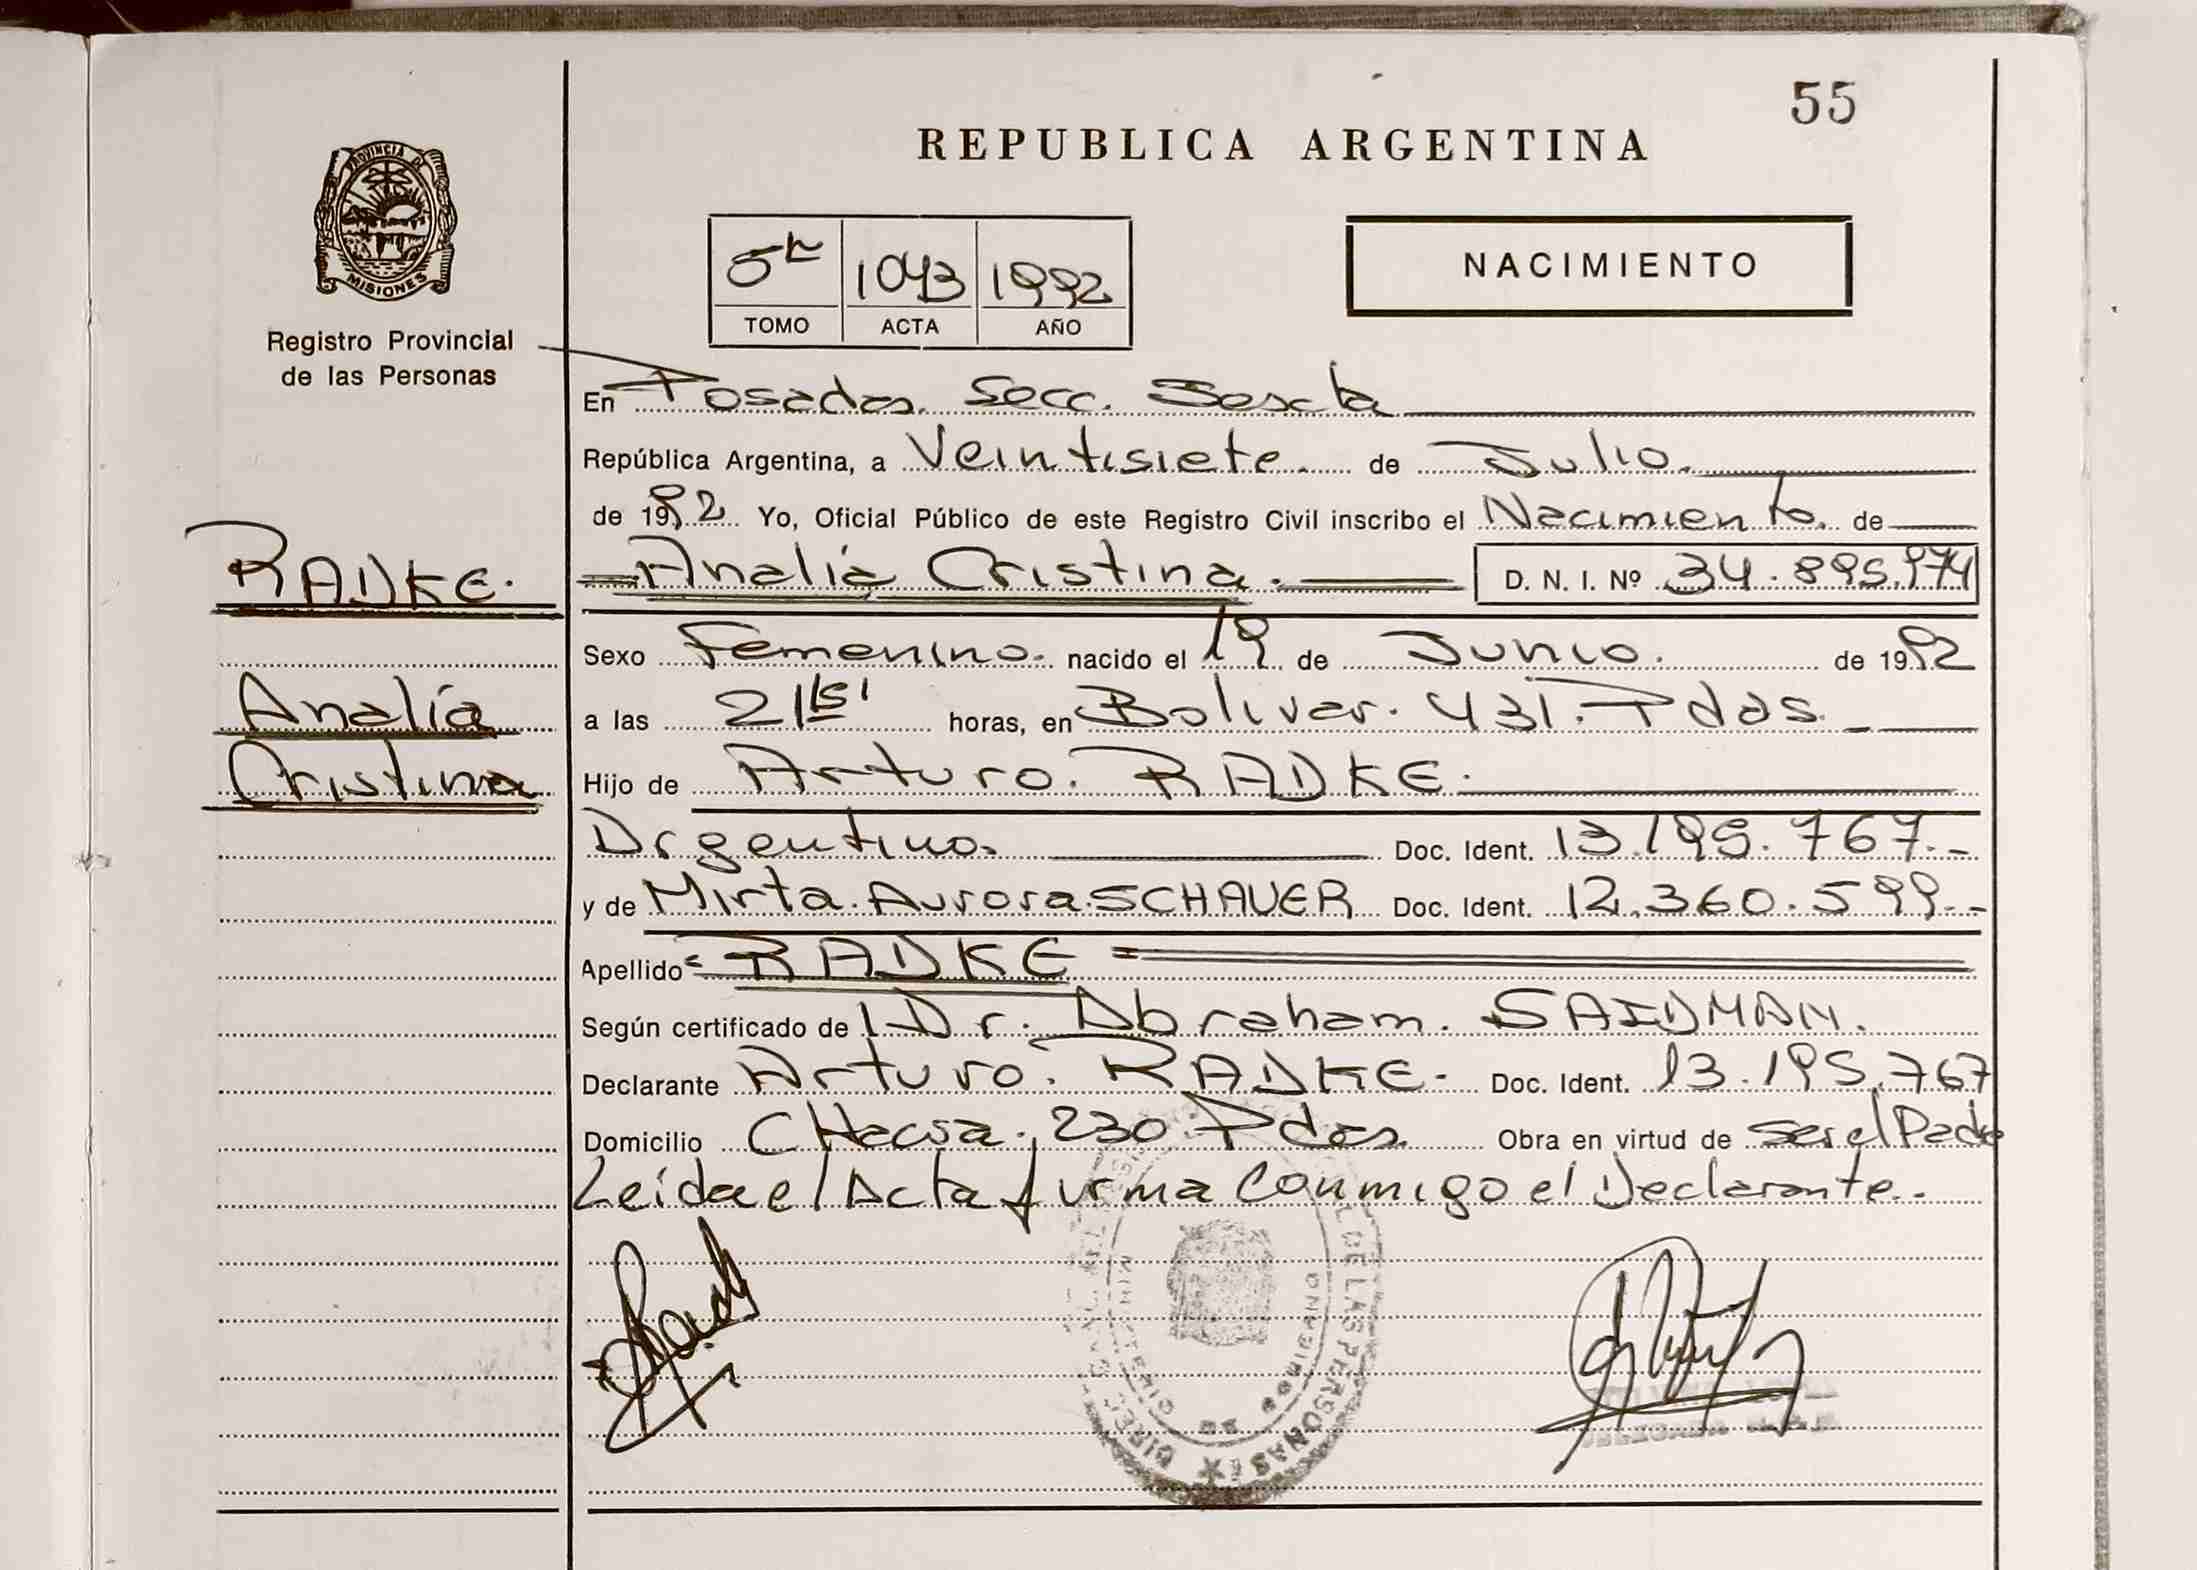 55
REPUBLICA ARGENTINA
PROVINCIA DE
MISIONES
Registro Provincial
de las Personas
5to 1043 1992
TOMO ACTA AÑO
NACIMIENTO
En Posadas. Secc. Sexta
República Argentina, a Veintisiete. de Julio.
de 1992 Yo, Oficial Público de este Registro Civil inscribo el Nacimiento. de
RADKE.
Analía Cristina. D. N. I. Nº 34.895.974
Sexo Femenino. nacido el 19 de Junio. de 1992
Analía
a las 21 15' horas, en Bolivar. 431. Pdas.
Cristina
Hijo de Arturo. RADKE.
Argentino. Doc. Ident. 13.195.767.-
y de Mirta. Aurora SCHAUER Doc. Ident. 12.360.599.-
Apellido = RADKE =
Según certificado de Dr. Abraham. SAIDMAN.
Declarante Arturo. RADKE. Doc. Ident. 13.195.767
Domicilio CHacra. 230. Pdas. Obra en virtud de ser el Padre
Leida el Acta firma Conmigo el Declarante.
DE LAS PERSONAS